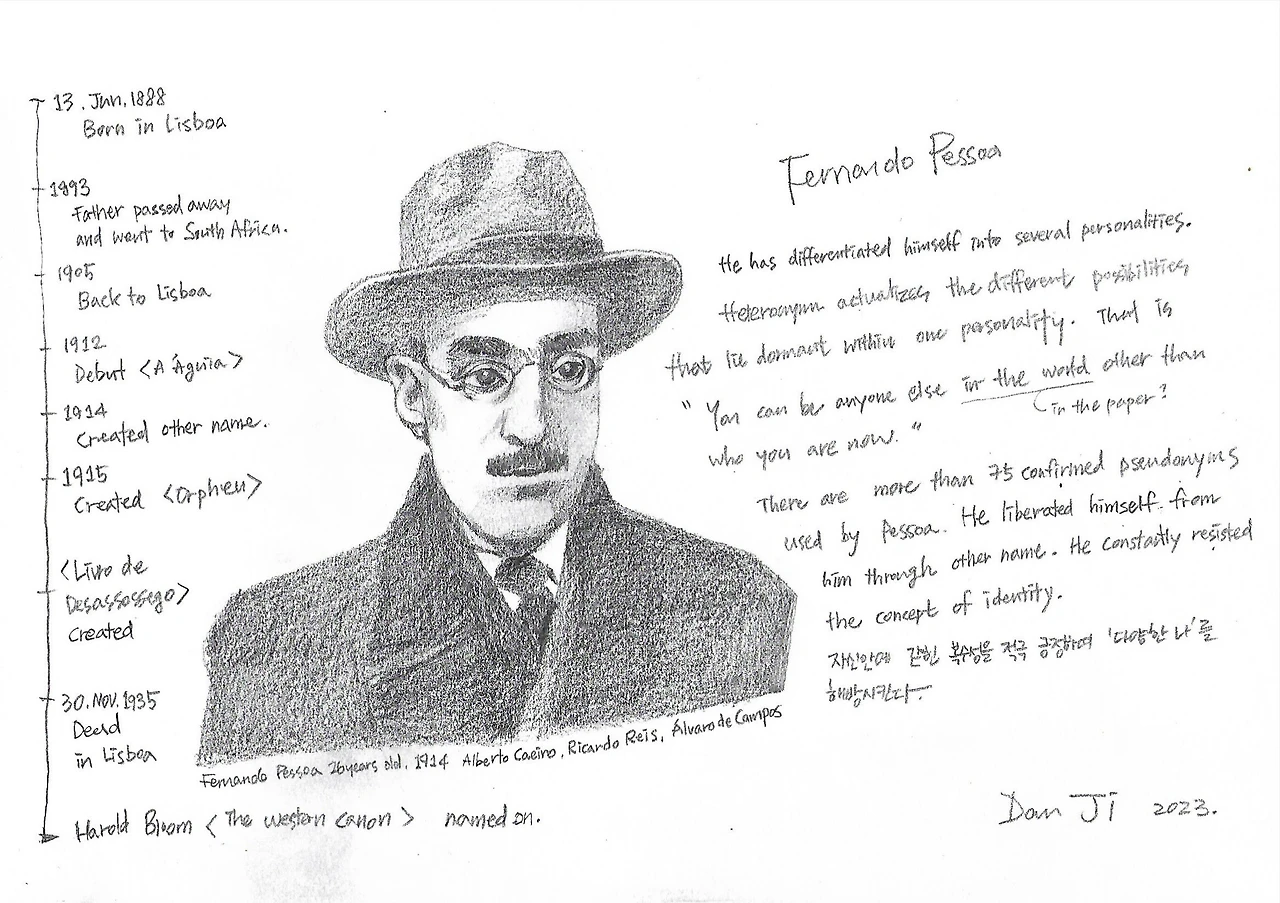 13. Jun, 1888
Born in Lisboa
1893
Father passed away
and went to South Africa.
1905
Back to Lisboa
1912
Debut <A Águia>
1914
Created other name.
1915
Created <Orpheu>
<Livro de
Desassossego>
Created
30. NOV. 1935
Dead
in Lisboa
Harold Bloom <The western canon> named on.
Fernando Pessoa 26years old, 1914 Alberto Caeiro, Ricardo Reis, Álvaro de Campos
Fernando Pessoa
He has differentiated himself into several personalities.
Heteronym actualizes the different possibilities
that lie dormant within one personality. That is
"You can be anyone else in the world other than
in the paper?
who you are now."
There are more than 75 confirmed pseudonyms
used by Pessoa. He liberated himself from
him through other name. He constactly resisted
the concept of identity.
자신안에 갇힌 복수성을 적극 긍정하여 '다양한 나'를
해방시킨다-
Dan JI 2023.